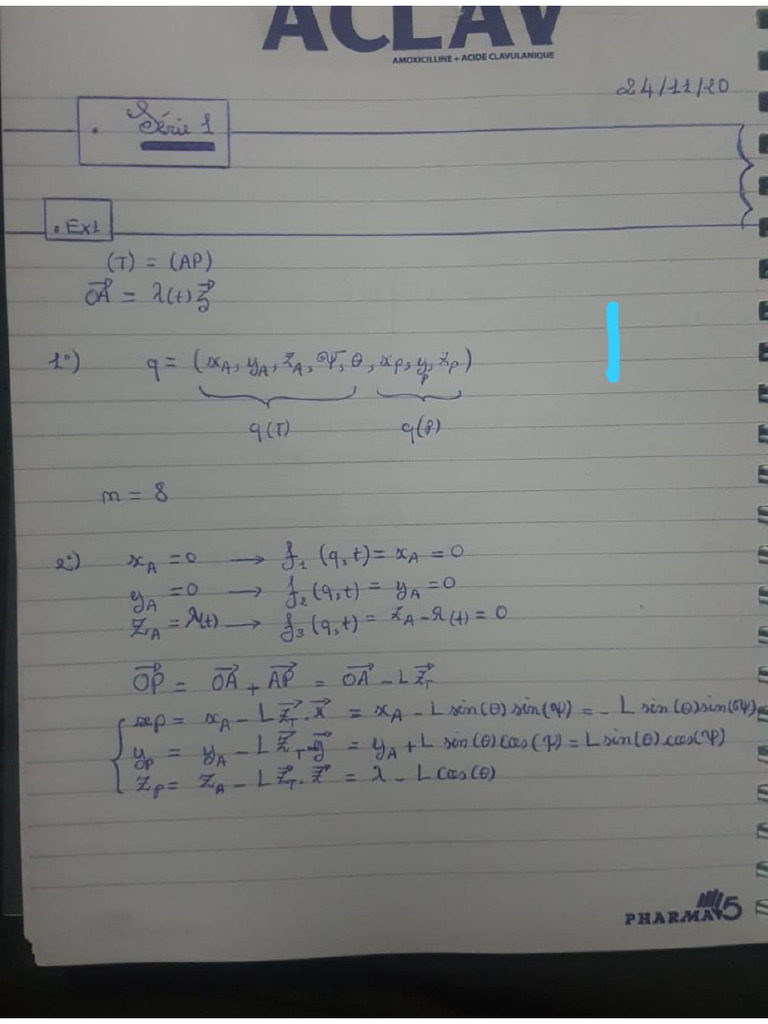 ACLAV
AMOXICILLINE + ACIDE CLAVULANIQUE
24/11/20
. Série 1
. Ex1
(T) = (AP)
OA⃗ = λ(t) z⃗
1°) q = (x_A, y_A, z_A, Ψ, θ, x_P, y_P, z_P)
q(T) q(P)
m = 8
2°) x_A = 0 → f_1 (q,t) = x_A = 0
y_A = 0 → f_2 (q,t) = y_A = 0
z_A = λ(t) → f_3 (q,t) = z_A - λ(t) = 0
OP⃗ = OA⃗ + AP⃗ = OA⃗ - L z⃗_T
x_P = x_A - L z⃗_T . x⃗ = x_A - L sin(θ) sin(Ψ) = - L sin(θ) sin(Ψ)
y_P = y_A - L z⃗_T . y⃗ = y_A + L sin(θ) cos(Ψ) = L sin(θ) . cos(Ψ)
z_P = z_A - L z⃗_T . z⃗ = λ - L cos(θ)
PHARMA 5